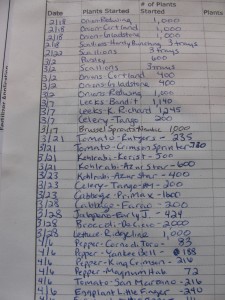 # of Plants
Date Plants Started Started
2/18 Onion-Redwing 1,000
2/18 Onion-Cortland 1,000
2/18 Onion-Gladstone 1,000
2/18 Scallions-Hardy Bunching 3 trays
2/22 Scallions 3 trays
3/2 Parsley 600
3/2 Scallions 3 trays
3/2 Onions-Cortland 400
3/2 Onions-Gladstone 400
3/2 Onions-Redwing 1,000
3/7 Leeks Bandit 1,140
3/7 Leeks K. Richard 1,245
3/7 Celery-Tango 200
3/17 Brussel Sprouts 1,000
3/21 Tomato-Rutgers-235
3/21 Tomato-Crimson Sprinter
3/21 Kohlrabi-Korist-500
3/21 Kohlrabi-Azur Star-600
3/23 Kohlrabi-Azur Star-400
3/23 Celery-Tango-200
3/23 Cabbage-Primax-1600
3/28 Cabbage-Farao-200
3/28 Jalapeno-Early J.-424
3/28 Broccoli-DeCicco-2000
3/28 Lettuce Ridgeline 1,000
4/6 Pepper-Corno di Toro-83
4/6 Pepper-Yankee Bell-188
4/6 Pepper-King Crimson-216
4/6 Pepper-Magnum Hab 72
4/6 Tomato-San Marzano-216
4/6 Eggplant Little Finger-240